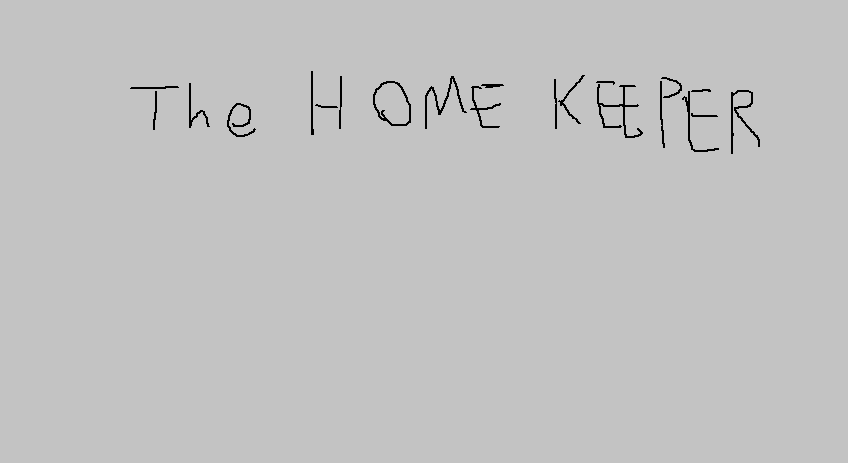 The HOME KEEPER